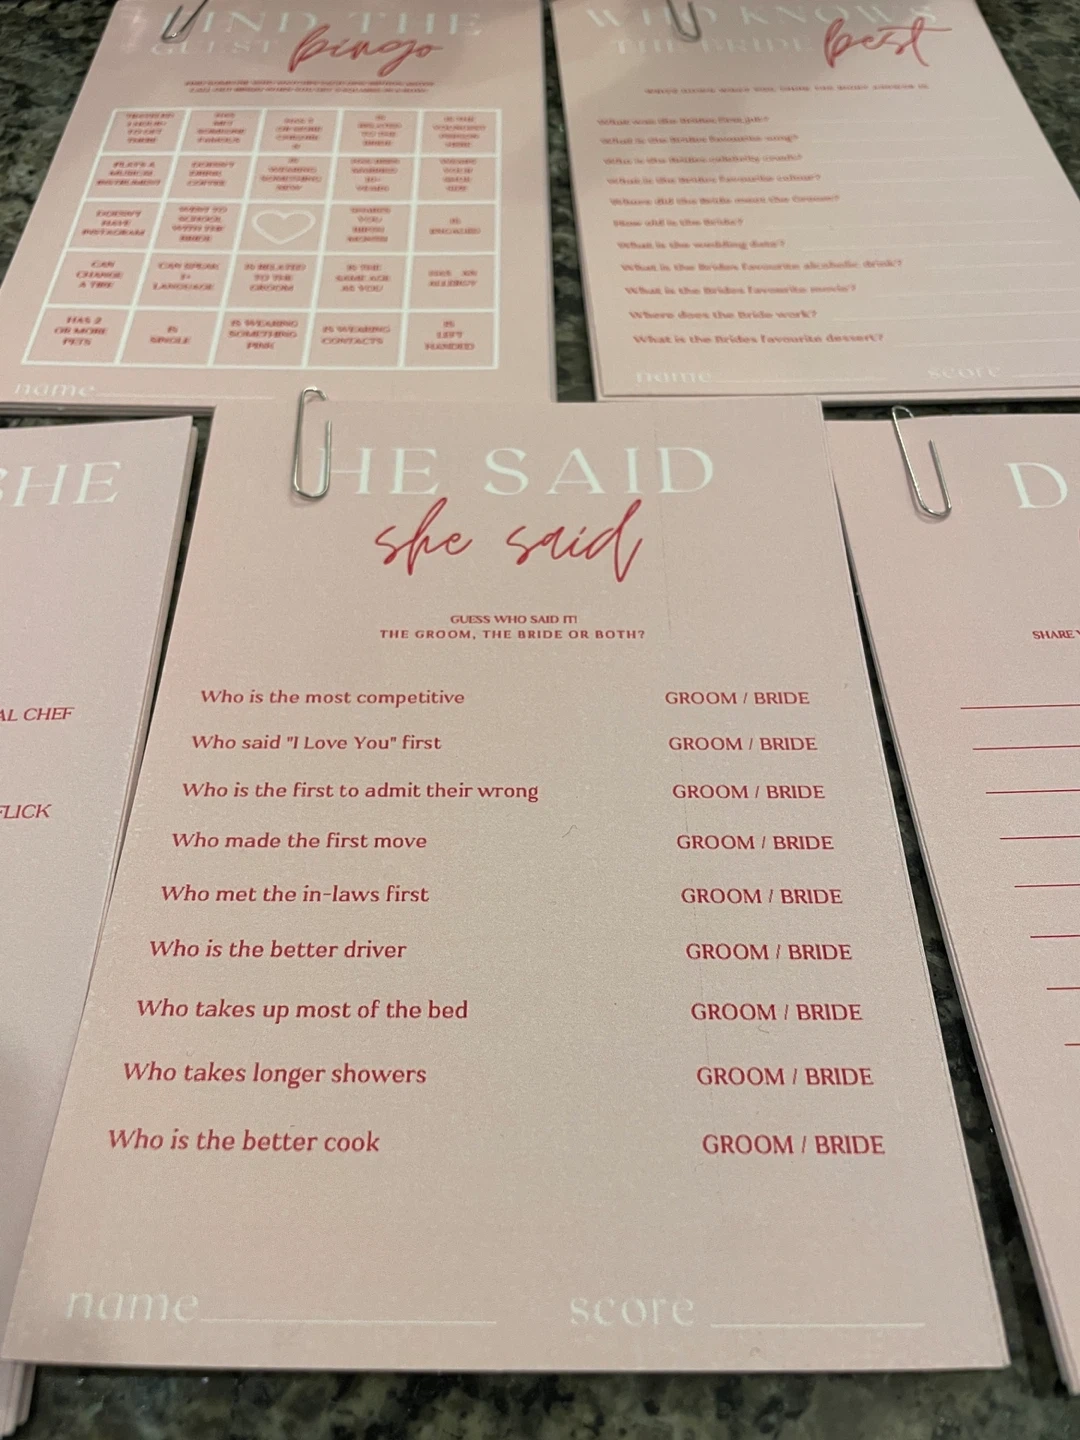 FIND THE
GUEST bingo
DOESN'T
DRINK
COFFEE
PLAYS A
MUSICAL
INSTRUMENT
IS
WEARING
SOMETHING
NEW
DOESN'T
HAVE
INSTAGRAM
WENT TO
SCHOOL
WITH THE
BRIDE
SHARES
YOU
BIRTH
MONTH
IS
ENGAGED
CAN
CHANGE
A TIRE
CAN SPEAK
LANGUAGE
IS RELATED
TO THE
GROOM
IS THE
SAME AGE
AS YOU
HAS AN
ALLERGY
HAS 2
OR MORE
PETS
IS
SINGLE
IS WEARING
SOMETHING
PINK
IS WEARING
CONTACTS
IS
LEFT
HANDED
name
WHO KNOWS
THE BRIDE best
What was the Brides first job?
What is the Brides favourite song?
Who is the Brides celebrity crush?
What is the Brides favourite colour?
Where did the Bride meet the Groom?
How old is the Bride?
What is the wedding date?
What is the Brides favourite alcoholic drink?
What is the Brides favourite movie?
Where does the Bride work?
What is the Brides favourite dessert?
name score
SHE
AL CHEF
FLICK
HE SAID
she said
GUESS WHO SAID IT!
THE GROOM, THE BRIDE OR BOTH?
Who is the most competitive GROOM / BRIDE
Who said "I Love You" first GROOM / BRIDE
Who is the first to admit their wrong GROOM / BRIDE
Who made the first move GROOM / BRIDE
Who met the in-laws first GROOM / BRIDE
Who is the better driver GROOM / BRIDE
Who takes up most of the bed GROOM / BRIDE
Who takes longer showers GROOM / BRIDE
Who is the better cook GROOM / BRIDE
name score
D
SHARE